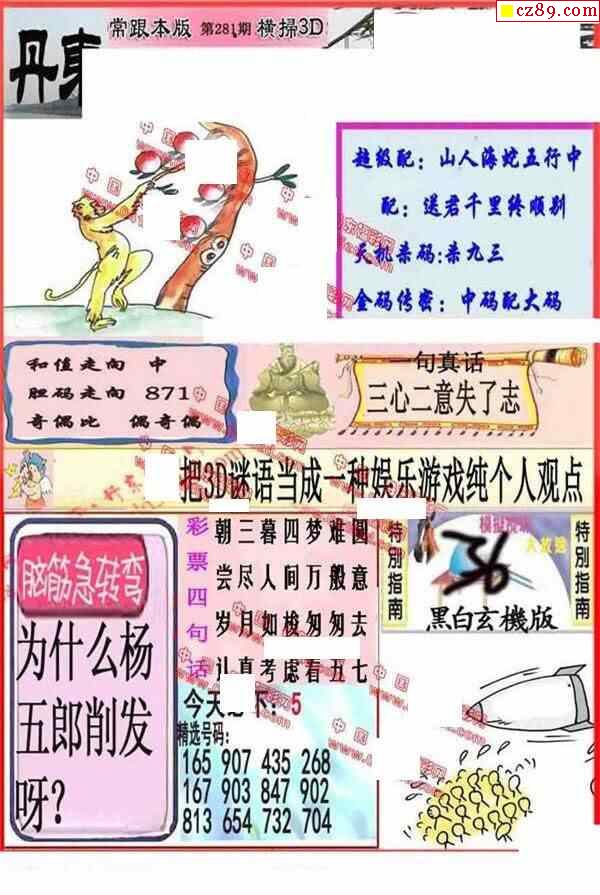 cz89.com
丹東
常跟本版 第281期 横掃3D
超级配：山人海蛇五行中
配：送君千里终顺别
天机杀码:杀九三
金码传密：中码配大码
和值走向 中
胆码走向 871
奇偶比 偶奇偶
一句真话
三心二意失了志
把3D谜语当成一种娱乐游戏纯个人观点
脑筋急转弯
为什么杨
五郎削发
呀？
彩票四句话
朝三暮四梦难圆
尝尽人间万般意
岁月如梭匆匆去
认真考虑看五七
今天 下：5
精选号码：
165 907 435 268
167 903 847 902
813 654 732 704
特别指南
36
黑白玄機版
特别指南